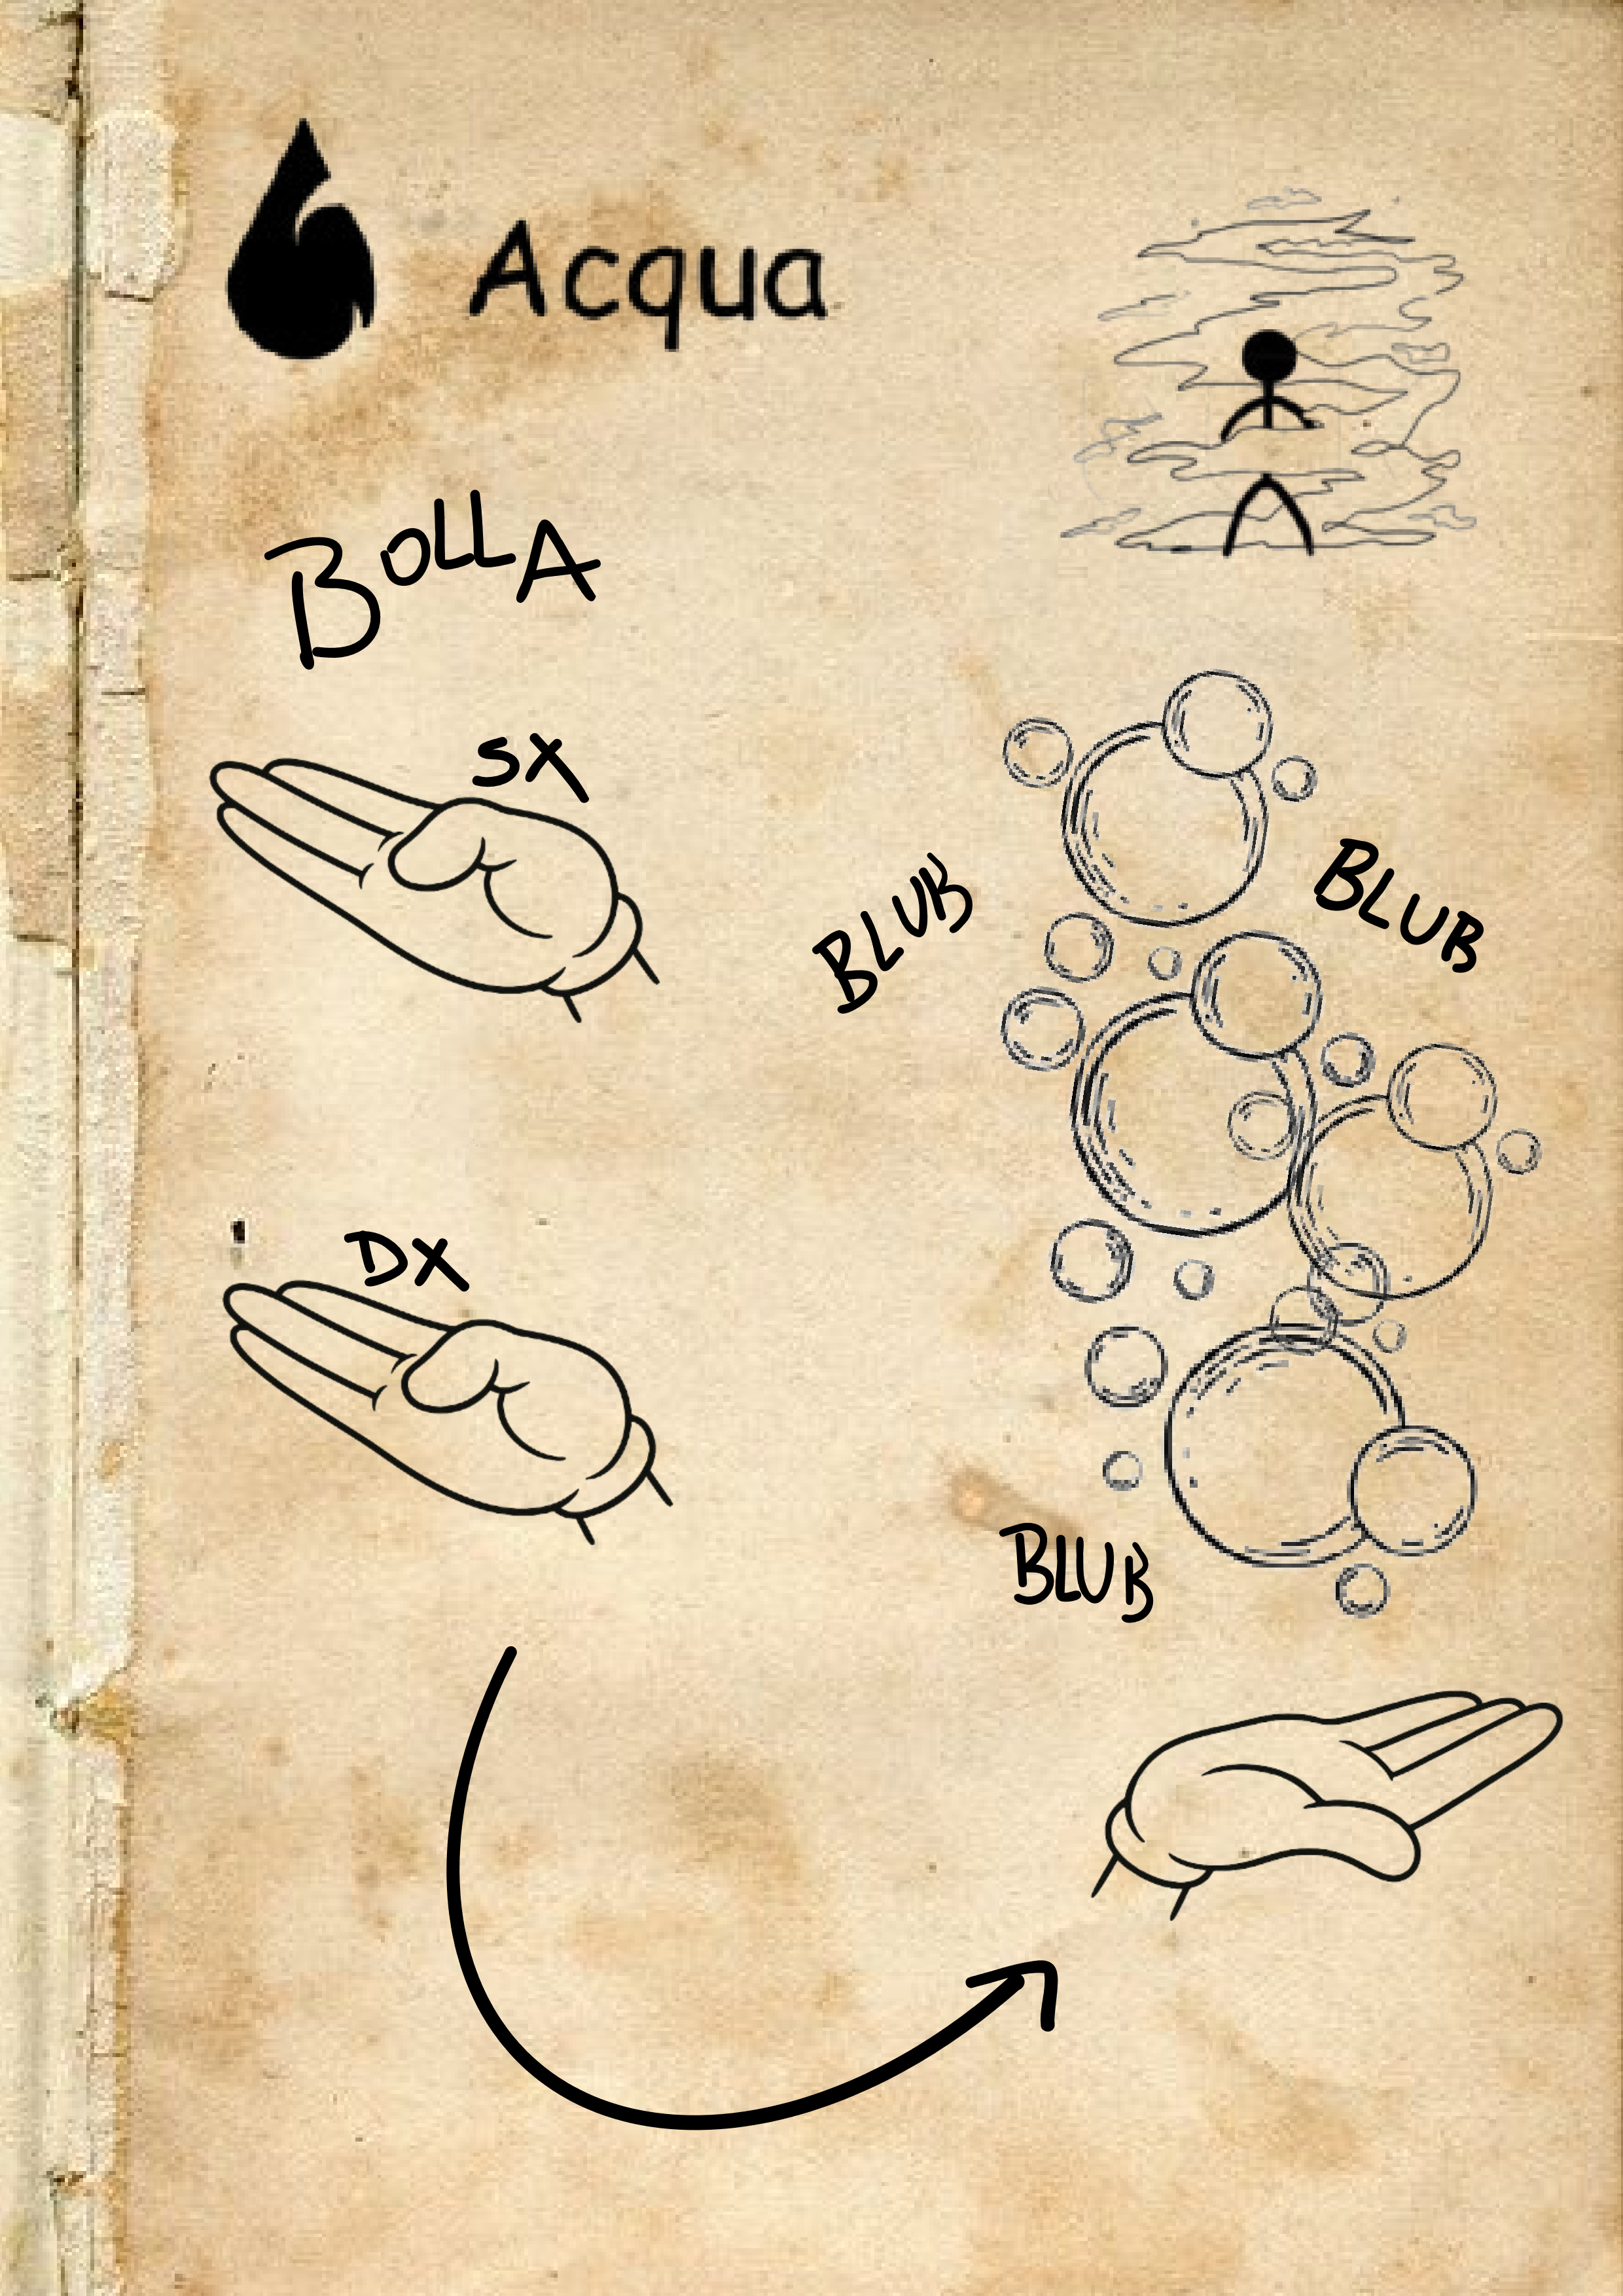 Acqua
BOLLA
SX
BLUB
BLUB
DX
BLUB